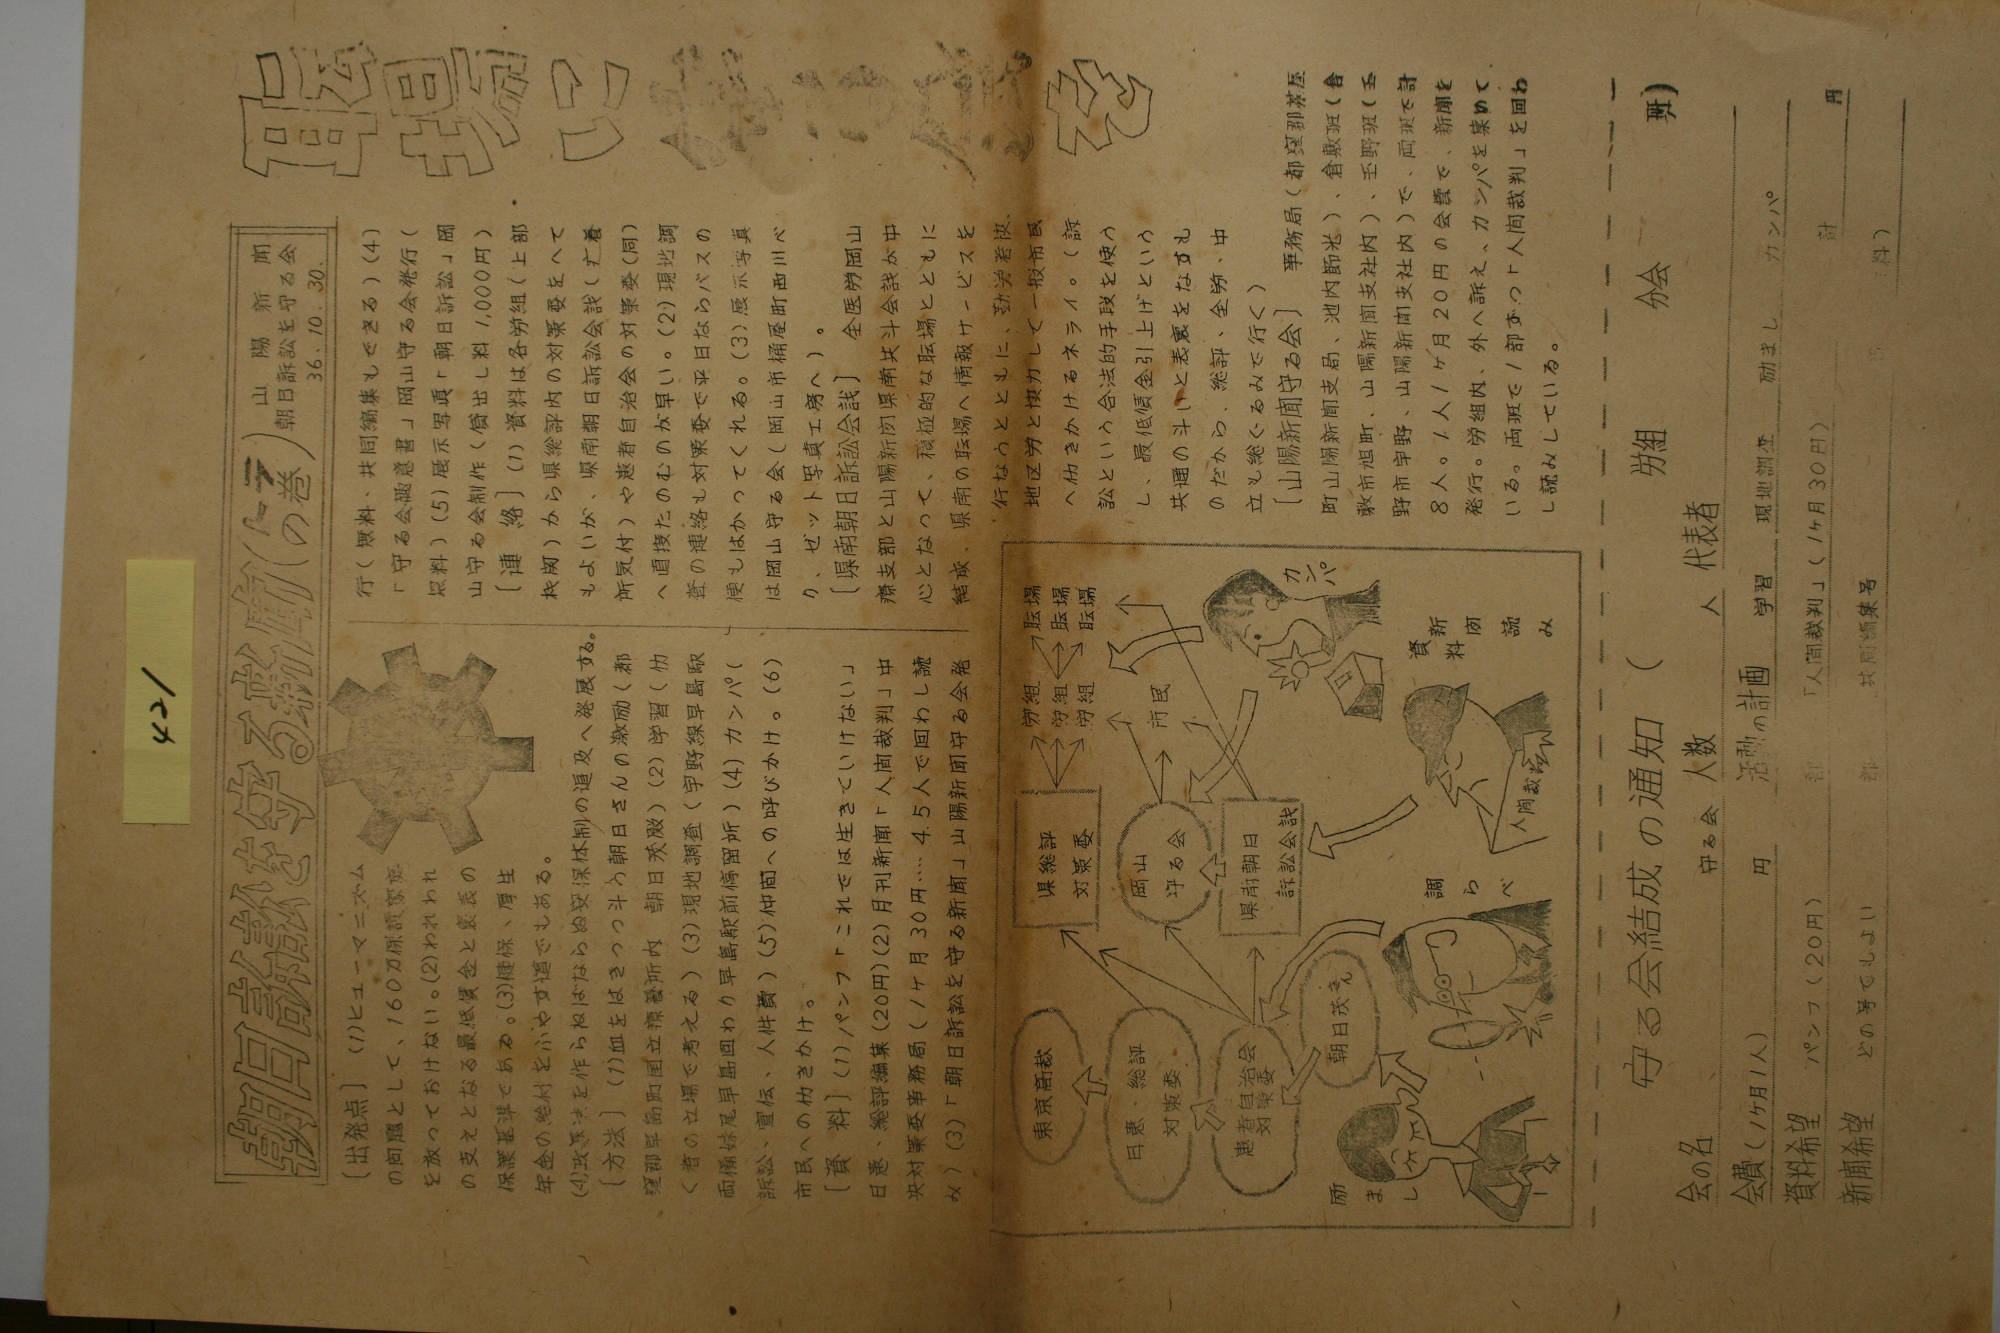 421
朝日訴訟を守る新聞(1-7の巻)
山陽新聞
朝日訴訟を守る会
36.10.30.
職場に
を
[出発点] (1)ヒューマニズム
の問題として、160万保護家庭
を放っておけない。(2)われわれ
の支えとなる最低賃金と裏表の
保護基準である。(3)健保、厚生
年金の給付をふやす道でもある。
(4)政暴法を作らねばならぬ安保体制の追及へ発展する。
[方法] (1)血をはきつつ斗う朝日さんの激励(都
窪郡早島町国立療養所内 朝日茂殿)(2)学習(仂
く者の立場で考える)(3)現地調査(宇野線早島駅
両備妹尾早島回わり早島駅前停留所)(4)カンパ(
訴訟、宣伝、人件費)(5)仲間への呼びかけ。(6)
市民への仂きかけ。
[資 料] (1)パンフ「これでは生きていけない」
日患、総評編集(20円)(2)月刊新聞「人間裁判」中
央対策委事務局(1ヶ月30円…4.5人で回わし読
み)(3)「朝日訴訟を守る新聞」山陽新聞守る会発
行(無料、共同編集もできる)(4)
「守る会趣意書」岡山守る会発行(
無料)(5)展示写真「朝日訴訟」岡
山守る会制作(貸出し料1,000円)
[連 絡] (1)資料は各労組(上部
機関)から県総評内の対策委をへて
もよいが、県南朝日訴訟会議(亡養
所気付)や患者自治会の対策委(同)
へ直接たのむのが早い。(2)現地調
査の連絡も対策委で平日ならバスの
便もはかってくれる。(3)展示写真
は岡山守る会(岡山市桶屋町西川べ
り、ゼット写真工房へ)。
[県南朝日訴訟会議] 全医労岡山
療支部と山陽新聞県南共斗会議が中
心となって、積極的な職場とともに
結成、県南の職場へ情報サービスを
行なうとともに、勤労者院、
地区労と協力して一般市民
へ仂きかけるネライ。(訴
訟という合法的手段を使う
し、最低賃金引上げという
共通の斗いと表裏をなすも
のだから、総評、全労、中
立も総ぐるみで行く)
[山陽新聞守る会] 事務局(都窪郡茶屋
町山陽新聞支局、池内節光)、倉敷班(倉
敷市旭町、山陽新聞支社内)、玉野班(玉
野市宇野、山陽新聞支社内)で、両班で計
8人。1人1ヶ月20円の会費で、新聞を
発行。労組内、外へ訴え、カンパを集めて
いる。両班で1部ずつ「人間裁判」を回わ
し読みしている。
東京高裁
日患・総評
対策委
患者自治会
対策委
朝日茂さん
県総評
対策委
岡山
守る会
県南朝日
訴訟会議
労組
労組
労組
職場
職場
職場
市民
励
ま
し
調
ら
べ
人間裁判
資料
新聞
読
み
カンパ
守る会結成の通知( 労組 分会 班)
会の名 守る会 人数 人 代表者
会費(1ヶ月1人) 円 活動の計画 学習 現地調査 励まし カンパ
資料希望 パンフ(20円) 部 「人間裁判」(1ヶ月30円) 部 計 円
新聞希望 どの号でもよい 部 共同編集号 部 料)